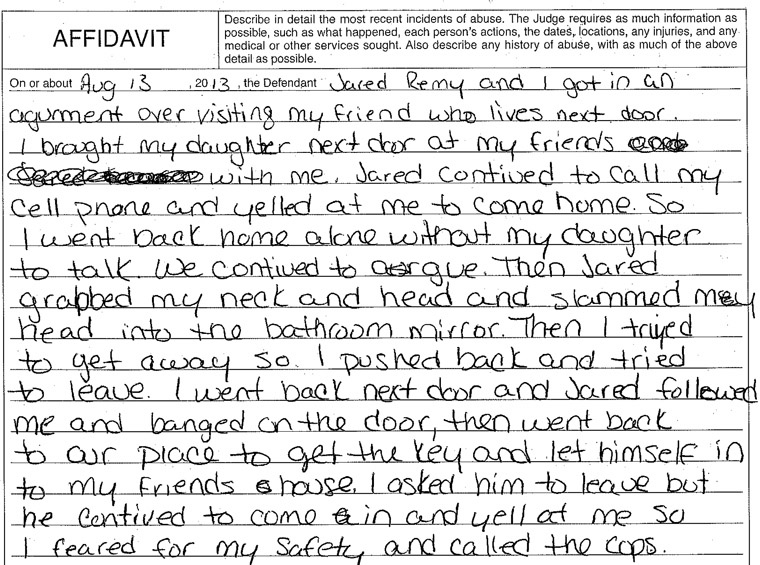 AFFIDAVIT
Describe in detail the most recent incidents of abuse. The Judge requires as much information as
possible, such as what happened, each person's actions, the dates, locations, any injuries, and any
medical or other services sought. Also describe any history of abuse, with as much of the above
detail as possible.
On or about Aug 13, 2013, the Defendant Jared Remy and I got in an
agurment over visiting my friend who lives next door.
I brought my daughter next door at my friends
with me. Jared contived to call my
cell phone and yelled at me to come home. So
I went back home alone without my daughter
to talk. We contived to argue. Then Jared
grabbed my neck and head and slammed my
head into the bathroom mirror. Then I tryed
to get away so. I pushed back and tried
to leave. I went back next door and Jared followed
me and banged on the door, then went back
to our place to get the key and let himself in
to my friends house. I asked him to leave but
he contived to come in and yell at me so
I feared for my safety and called the cops.